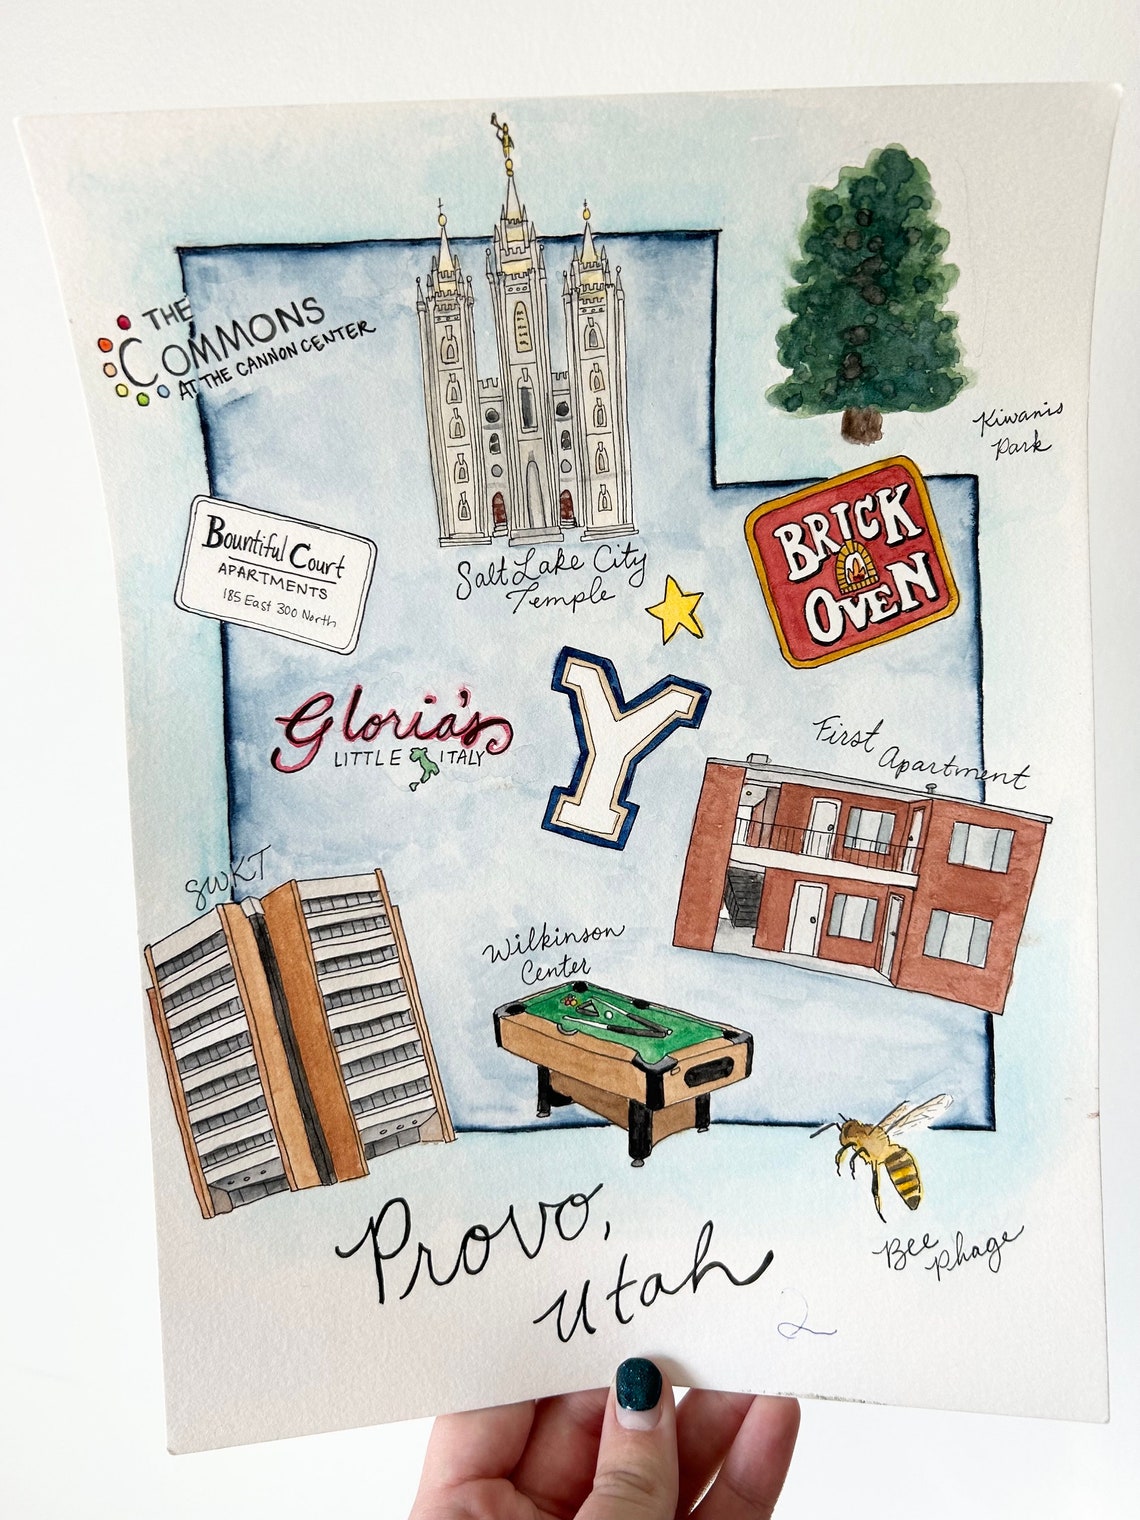 THE
COMMONS
AT THE CANNON CENTER
Kiwanis
Park
Bountiful Court
APARTMENTS
185 East 300 North
Salt Lake City
Temple
BRICK
OVEN
Gloria's
LITTLE ITALY
Y
First Apartment
SWKT
Wilkinson
Center
Bee
Phage
Provo,
Utah
2